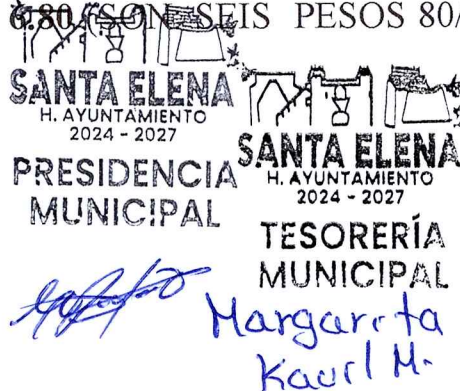 6.80 (SON SEIS PESOS 80/
SANTA ELENA
H. AYUNTAMIENTO
2024 - 2027
PRESIDENCIA
MUNICIPAL
SANTA ELENA
H. AYUNTAMIENTO
2024 - 2027
TESORERÍA
MUNICIPAL
Margarita
Kauil M.